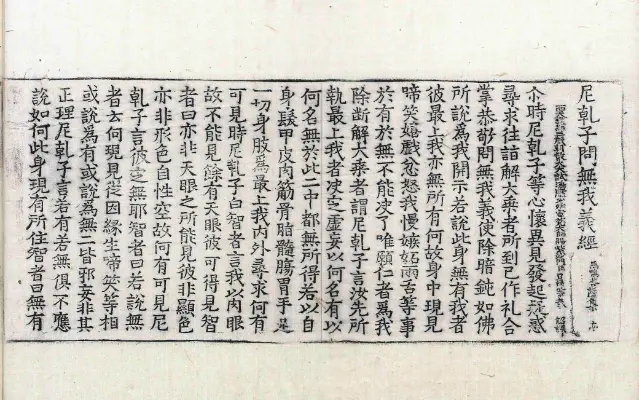 尼乹子問無我義經
尒時尼乹子等心懷異見發起疑惑
尋求往詣解大乘者所到已作礼合
掌恭敬問無我義使除暗鈍如佛
所說為我開示若說此身無有我者
彼最上我亦無所有何故身中現見
啼笑嬉戲忿怒我慢嫉妬兩舌等事
於有於無不能决了唯願仁者為我
除断解大乘者謂尼乹子言汝先所
執最上我者决定虛妄以何名有以
何名無於此二中都無所得若以自
身髮甲皮肉筋骨脂髓膓胃手足
一切身肢為最上我内外尋求何有
可見時尼乹子白智者言我以肉眼
故不能見餘有天眼彼可得見智
者曰亦非天眼之所能見彼非顯色
亦非形色自性空故何有可見尼
乹子言彼定無耶智者曰若說無
者云何現見從因緣生啼笑等相
或說為有或說為無二皆邪妄非其
正理尼乹子言若有若無俱不應
說如何此身現有所住智者曰無有